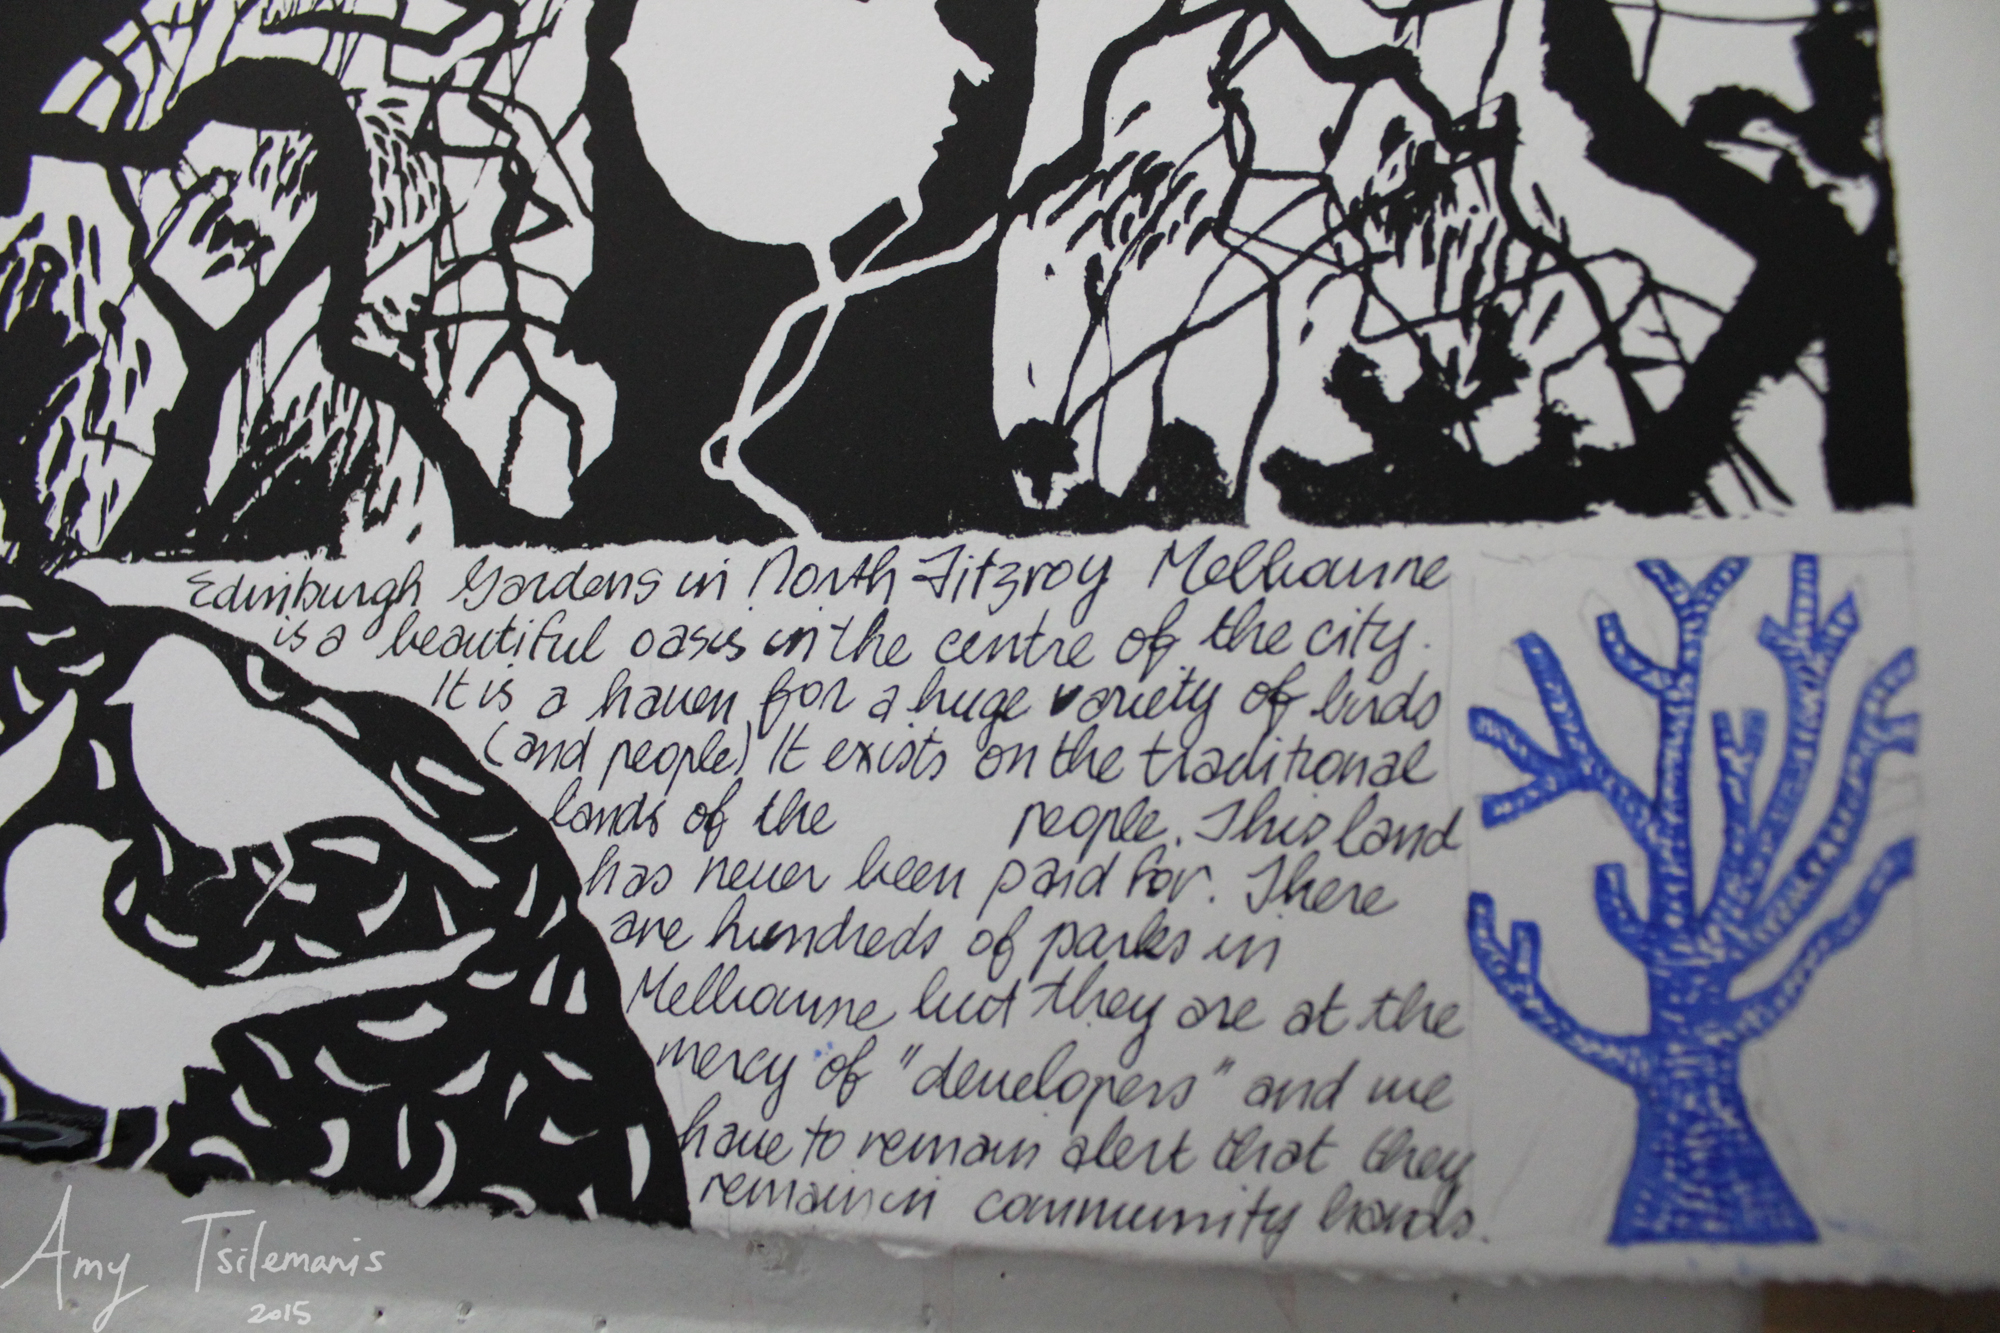 Edinburgh Gardens in North Fitzroy Melbourne
is a beautiful oasis in the centre of the city.
It is a haven for a huge variety of birds
(and people) It exists on the traditional
lands of the people. This land
has never been paid for. There
are hundreds of parks in
Melbourne but they are at the
mercy of "developers" and we
have to remain alert that they
remain in community hands.
Amy Tsilemanis
2015